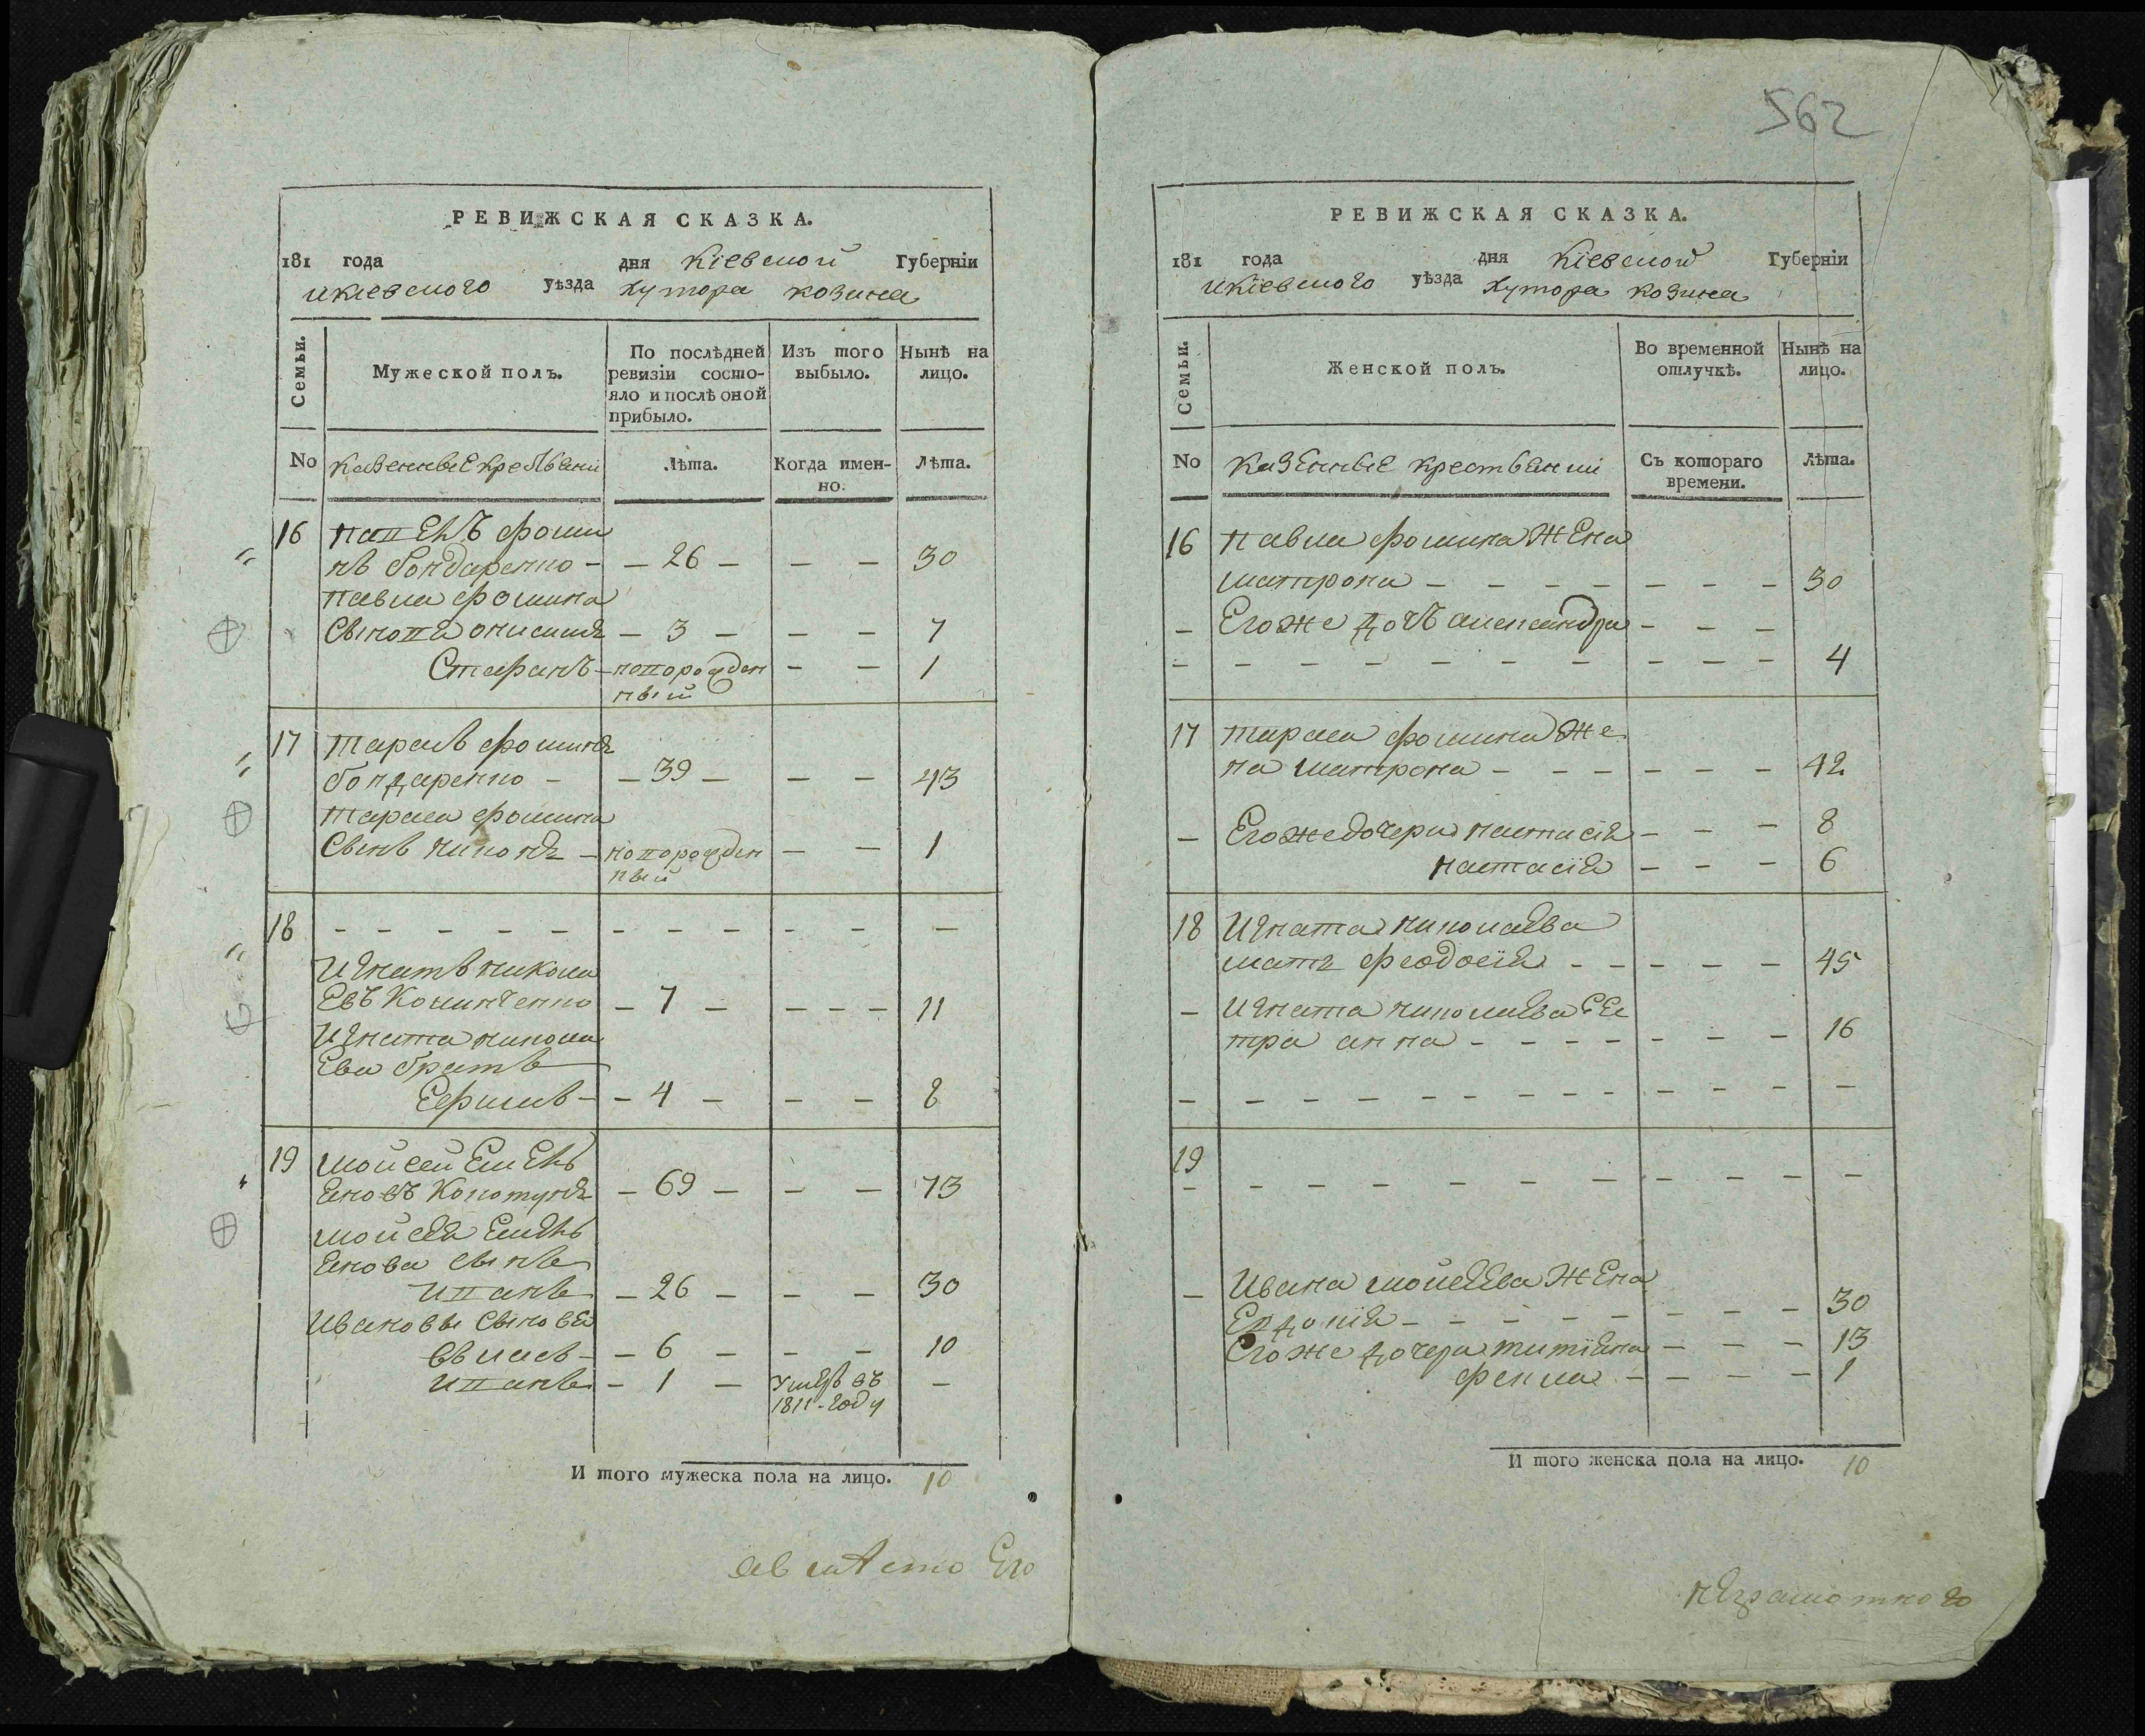 562
РЕВИЖСКАЯ СКАЗКА.
181 года дня Кіевской Губерніи
икіевского уѣзда хутора козина
Семьи.
Мужеской полъ.
По послѣдней ревизіи состо-
яло и послѣ оной
прибыло.
Изъ того выбыло.
Нынѣ на лицо.
No казенные
Лѣта.
Когда имен-
но.
Лѣта.
16 фоми
нъ бондаренко - - 26 - - - 30
павла фомина
онисимъ - 3 - - - 7
Стефанъ - новорожден - - 1
ный
17 тарасъ фоминъ
бондаренко - - 39 - - - 43
тараса фомина
сынъ никонъ - новорожден - - 1
ный
18 - - - - - - - - - - - -
игнатъ никола
евъ - 7 - - - - 11
игната никола
ева братъ
Ефимъ - - 4 - - - 8
19 мойсей Емель
яновъ - 69 - - - 73
мойсея Емель
янова сынъ
иванъ - 26 - - - 30
Ивановы сыновья
власъ - - 6 - - - 10
иванъ - 1 - умеръ въ -
1811-году
И того мужеска пола на лицо. 10
вмѣсто Его
РЕВИЖСКАЯ СКАЗКА.
181 года дня Кіевской Губерніи
икіевского уѣзда хутора козина
Семьи.
Женской полъ.
Во временной отлучкѣ.
Нынѣ на лицо.
No казенные крестьянки
Съ котораго времени.
Лѣта.
16 павла фомина жена
матрона - - - - - - - 30
- Егоже дочь александра - - -
- - - - - - - - - - - 4
17 тараса фомина же
на матрона - - - - - - 42
- Егоже дочери настасія - - - 8
настасія - - - 6
18 Игната николаева
мать феодосія - - - - - 45
- Игната николаева сес
тра анна - - - - - - - 16
- - - - - - - - - - - -
19
- - - - - - - - - - - -
- Ивана мойсеева жена
Евдокія - - - - - - - 30
Егоже дочери татіяна - - - 13
фекла - - - - 1
И того женска пола на лицо. 10
неграмотного